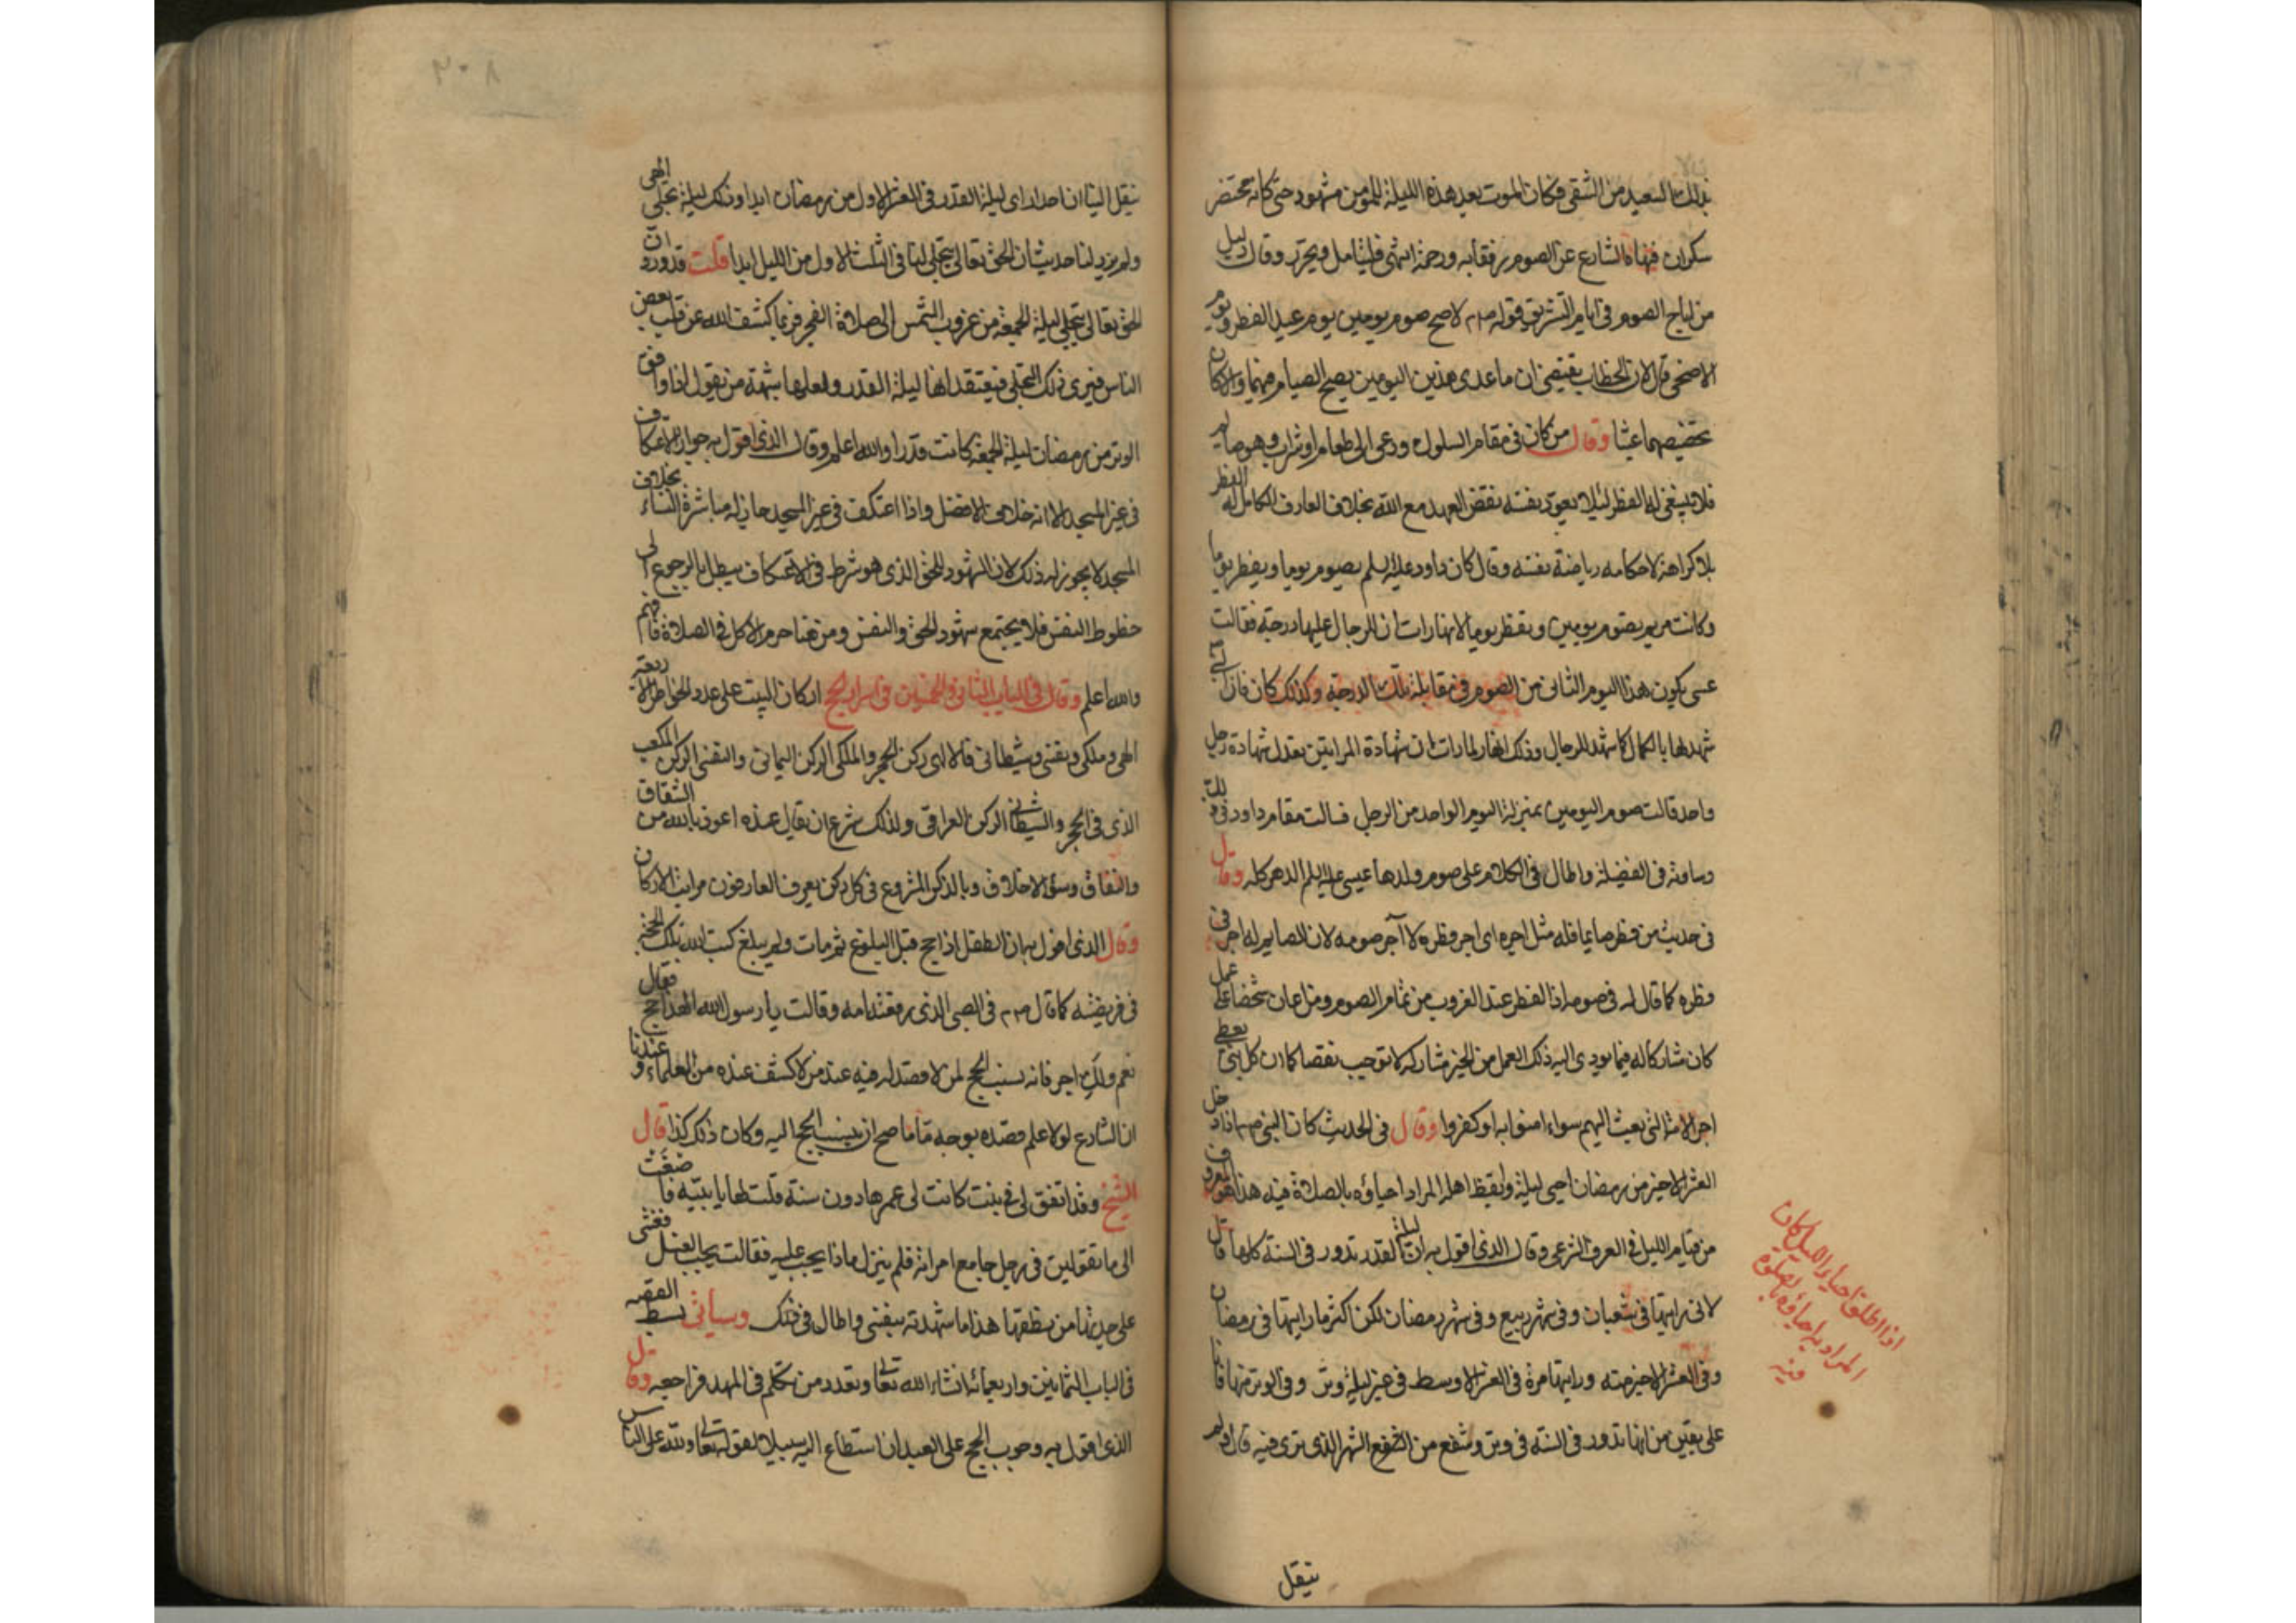 بذلك السعيد من الشقى فكان الموت بعد هذه الليلة للمومن مشهود حتى كانه محتضر
سكران فنهاه الشارع عن الصوم رفقا به ورحمة انتهى فليتامل ويحرر وقال دليل
من اباح الصوم فى ايام التشريق قوله صم لا صح صوم يومين يوم عيد الفطر ويوم
الاضحى قال لان الخطاب يقتضى ان ما عدى هذين اليومين يصح الصيام فيهما والا كان
تخصيصهما عبثا وقال من كان فى مقام السلوك ودعى الى طعام او شراب وهو صايم
فلا ينبغى له الفطر لئلا يعود نفسه نقض العهد مع الله بخلاف العارف الكامل له الفطر
بلا كراهة لاحكامه رياضة نفسه وقال كان داود عليه السلم يصوم يوما ويفطر يوما
وكانت مريم تصوم يومين وتفطر يوما لانها رات ان للرجال عليها درجة فقالت
عسى يكون هذا اليوم الثانى من الصوم فى مقابلة تلك الدرجة وكذلك كان فان النبى
شهد لها بالكمال كما شهد للرجال وذلك انها لما رات ان شهادة المراتين تعدل شهادة رجل
واحد قالت صوم اليومين بمنزلة اليوم الواحد من الرجل فنالت مقام داود فى ذلك
وساوته فى الفضيلة واطال فى الكلام على صوم ولدها عيسى عليه السلم الدهر كله وقال
فى حديث من فطر صايما فله مثل اجره اى اجر فطره لا اجر صومه لان الصايم له اجر فى
فطره كما قال له فى صومه اذ الفطر عند الغروب من تمام الصوم ومن اعان شخصا على عمل
كان مشاركا له فيما يودى اليه ذلك العمل من الخير مشاركة لا توجب نقصا كما ان كل نبى يعطى
اجر الامة التى بعث اليهم سواء امنوا به او كفروا وقال فى الحديث كان النبى صم اذا دخل
العشر الاخير من رمضان احيى ليله وايقظ اهله المراد احياؤه بالصلاة فيه هذا هو المعروف
من قيام الليل فى العرف الشرعى وقال الذى اقول به ان ليلة القدر تدور فى السنة كلها قال
لانى رايتها فى شعبان وفى شهر ربيع وفى شهر رمضان لكن اكثر ما رايتها فى رمضان
وفى العشر الاخير منه ورايتها مرة فى العشر الاوسط فى غير ليلة وتر وفى الوتر منها فانا
على يقين من انها تدور فى السنة فى وتر وشفع من الشهر الذى ترى فيه قال ولم
اذا اطلق احياء الليل كان
المراد به احياؤه بالصلوة
فيه
ينقل
٢٠٨
ينقل الينا ان احدا راى ليلة القدر فى العشر الاول من رمضان ابدا وذلك ليلة تجلى الهى
ولم يرد لنا حديث ان الحق تعالى يتجلى لنا فى الثلث الاول من الليل ابدا قلت قد ورد ان
الحق تعالى يتجلى ليلة الجمعة من غروب الشمس الى صلاة الفجر فربما كشف الله عن قلب بعض
الناس فيرى ذلك التجلى فيعتقد انها ليلة القدر ولعلها شبهة من يقول اذا وافق
الوتر من رمضان ليلة الجمعة كانت قدرا والله اعلم وقال الذى اقول به جواز الاعتكاف
فى غير المسجد الا انه خلاف الافضل واذا اعتكف فى غير المسجد جاز له مباشرة النساء بخلاف
المسجد لا يجوز له ذلك لان الشهود للحق الذى هو شرط فى الاعتكاف يبطل بالرجوع الى
حظوظ النفس فلا يجتمع شهود الحق والنفس ومن هنا حرم الاكل فى الصلاة فافهم
والله اعلم وقال فى الباب الثانى والخمسين فى اسرار الحج اركان البيت على عدد الخواطر الاربعة
الهى وملكى ونفسى وشيطانى فالالهى ركن الحجر والملكى الركن اليمانى والنفسى الركن المكعب
الذى فى الحجر والشيطانى الركن العراقى ولذلك شرع ان يقال عنده اعوذ بالله من الشقاق
والنفاق وسؤ الاخلاق وبالذكر المشروع فى كل ركن يعرف العارفون مراتب الاركان
وقال الذى اقول به ان الطفل اذا حج قبل البلوغ ثم مات ولم يبلغ كتب الله تلك الحجة
فى فريضته كما قال صم فى الصبى الذى رفعته امه وقالت يا رسول الله الهذا حج فقال
نعم ولك اجر فانه نسب الحج لمن لا قصد له فيه عند من لا كشف عنده من العلماء وعندنا
ان الشارع لولا علم قصده بوجه ما ما صح ان ينسب الحج اليه وكان ذلك كذبا قال
الشيخ وقد اتفق لى فى بنت كانت لى عمرها دون سنة قلت لها يا بنية فاصغت
الى ما تقولين فى رجل جامع امراته فلم ينزل ماذا يجب عليه فقالت يجب الغسل فغشى
على جدتها من نطقها هذا ما شهدته بنفسى واطال فى ذلك وسيأتى بسط القصة
فى الباب الثمانين واربعمائة انشاء الله تعالى وتعدد من تكلم فى المهد فراجعه وقال
الذى اقول به وجوب الحج على العبد ان استطاع اليه سبيلا لقوله تعالى ولله على الناس